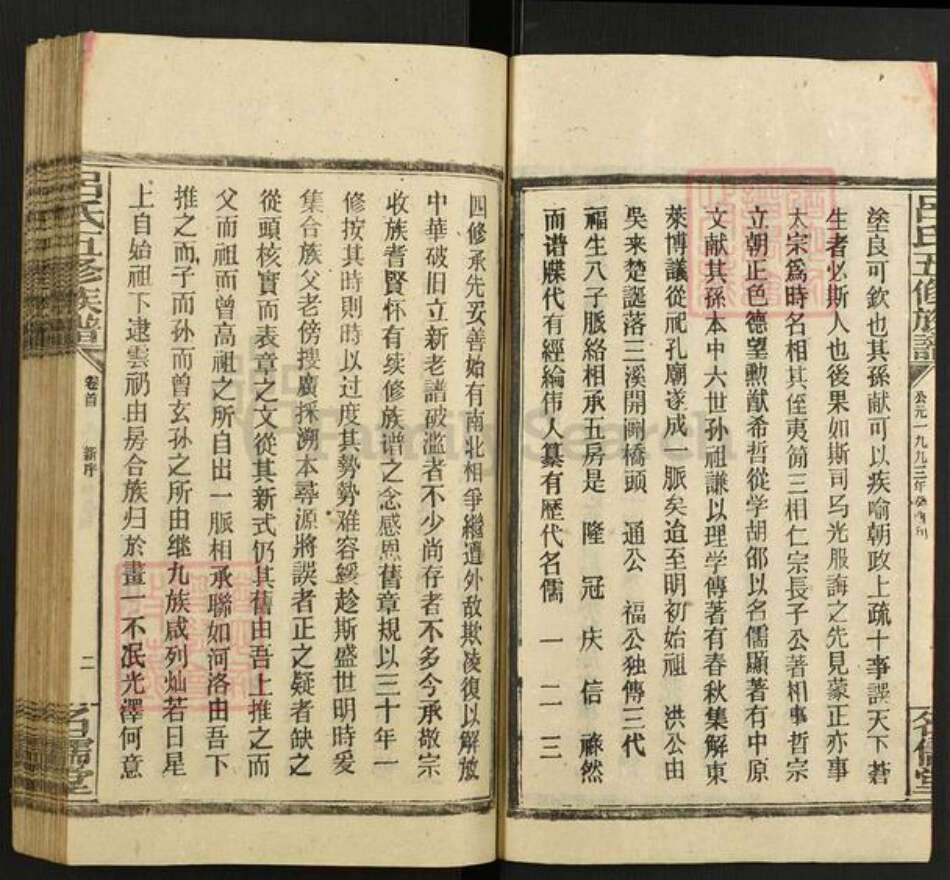 呂氏五修族譜
公元一九九三年癸酉刊
名儒堂
塗良可欽也其孫献可以疾喻朝政上疏十事誤天下蒼
生者必斯人也後果如斯司马光服誨之先見蒙正亦事
太宗爲時名相其侄夷簡三相仁宗長子公著相事哲宗
立朝正色德望勲猷希哲從学胡邵以名儒顯著有中原
文献其孫本中六世孙祖謙以理学傳著有春秋集解東
萊博議從祀孔廟遂成一脈矣迨至明初始祖 洪公由
吳来楚誕落三溪開剛橋頭 通公 福公独傳三代
福生八子脈絡相承五房是 隆 冠 庆 信 祿然
而谱牒代有經綸伟人纂有歷代名儒 一 二 三
四修承先妥善始有南北相爭繼遭外敌欺凌復以解放
中華破旧立新老譜破滥者不少尚存者不多今承敬宗
收族耆賢怀有续修族谱之念感恩舊章規以三十年一
修按其時則時以过度其勢勢难容緩趁斯盛世明時爰
集合族父老傍搜廣採溯本尋源將誤者正之疑者缺之
從頭核實而表章之文從其新式仍其舊由吾上推之而
父而祖而曾高祖之所自出一脈相承聯如河洛由吾下
推之而子而孙而曾玄孙之所由继九族咸列灿若日星
上自始祖下逮雲礽由房合族归於畫一不泯光澤何意
呂氏五修族譜
卷首 新序
二
名儒堂
FamilySearch